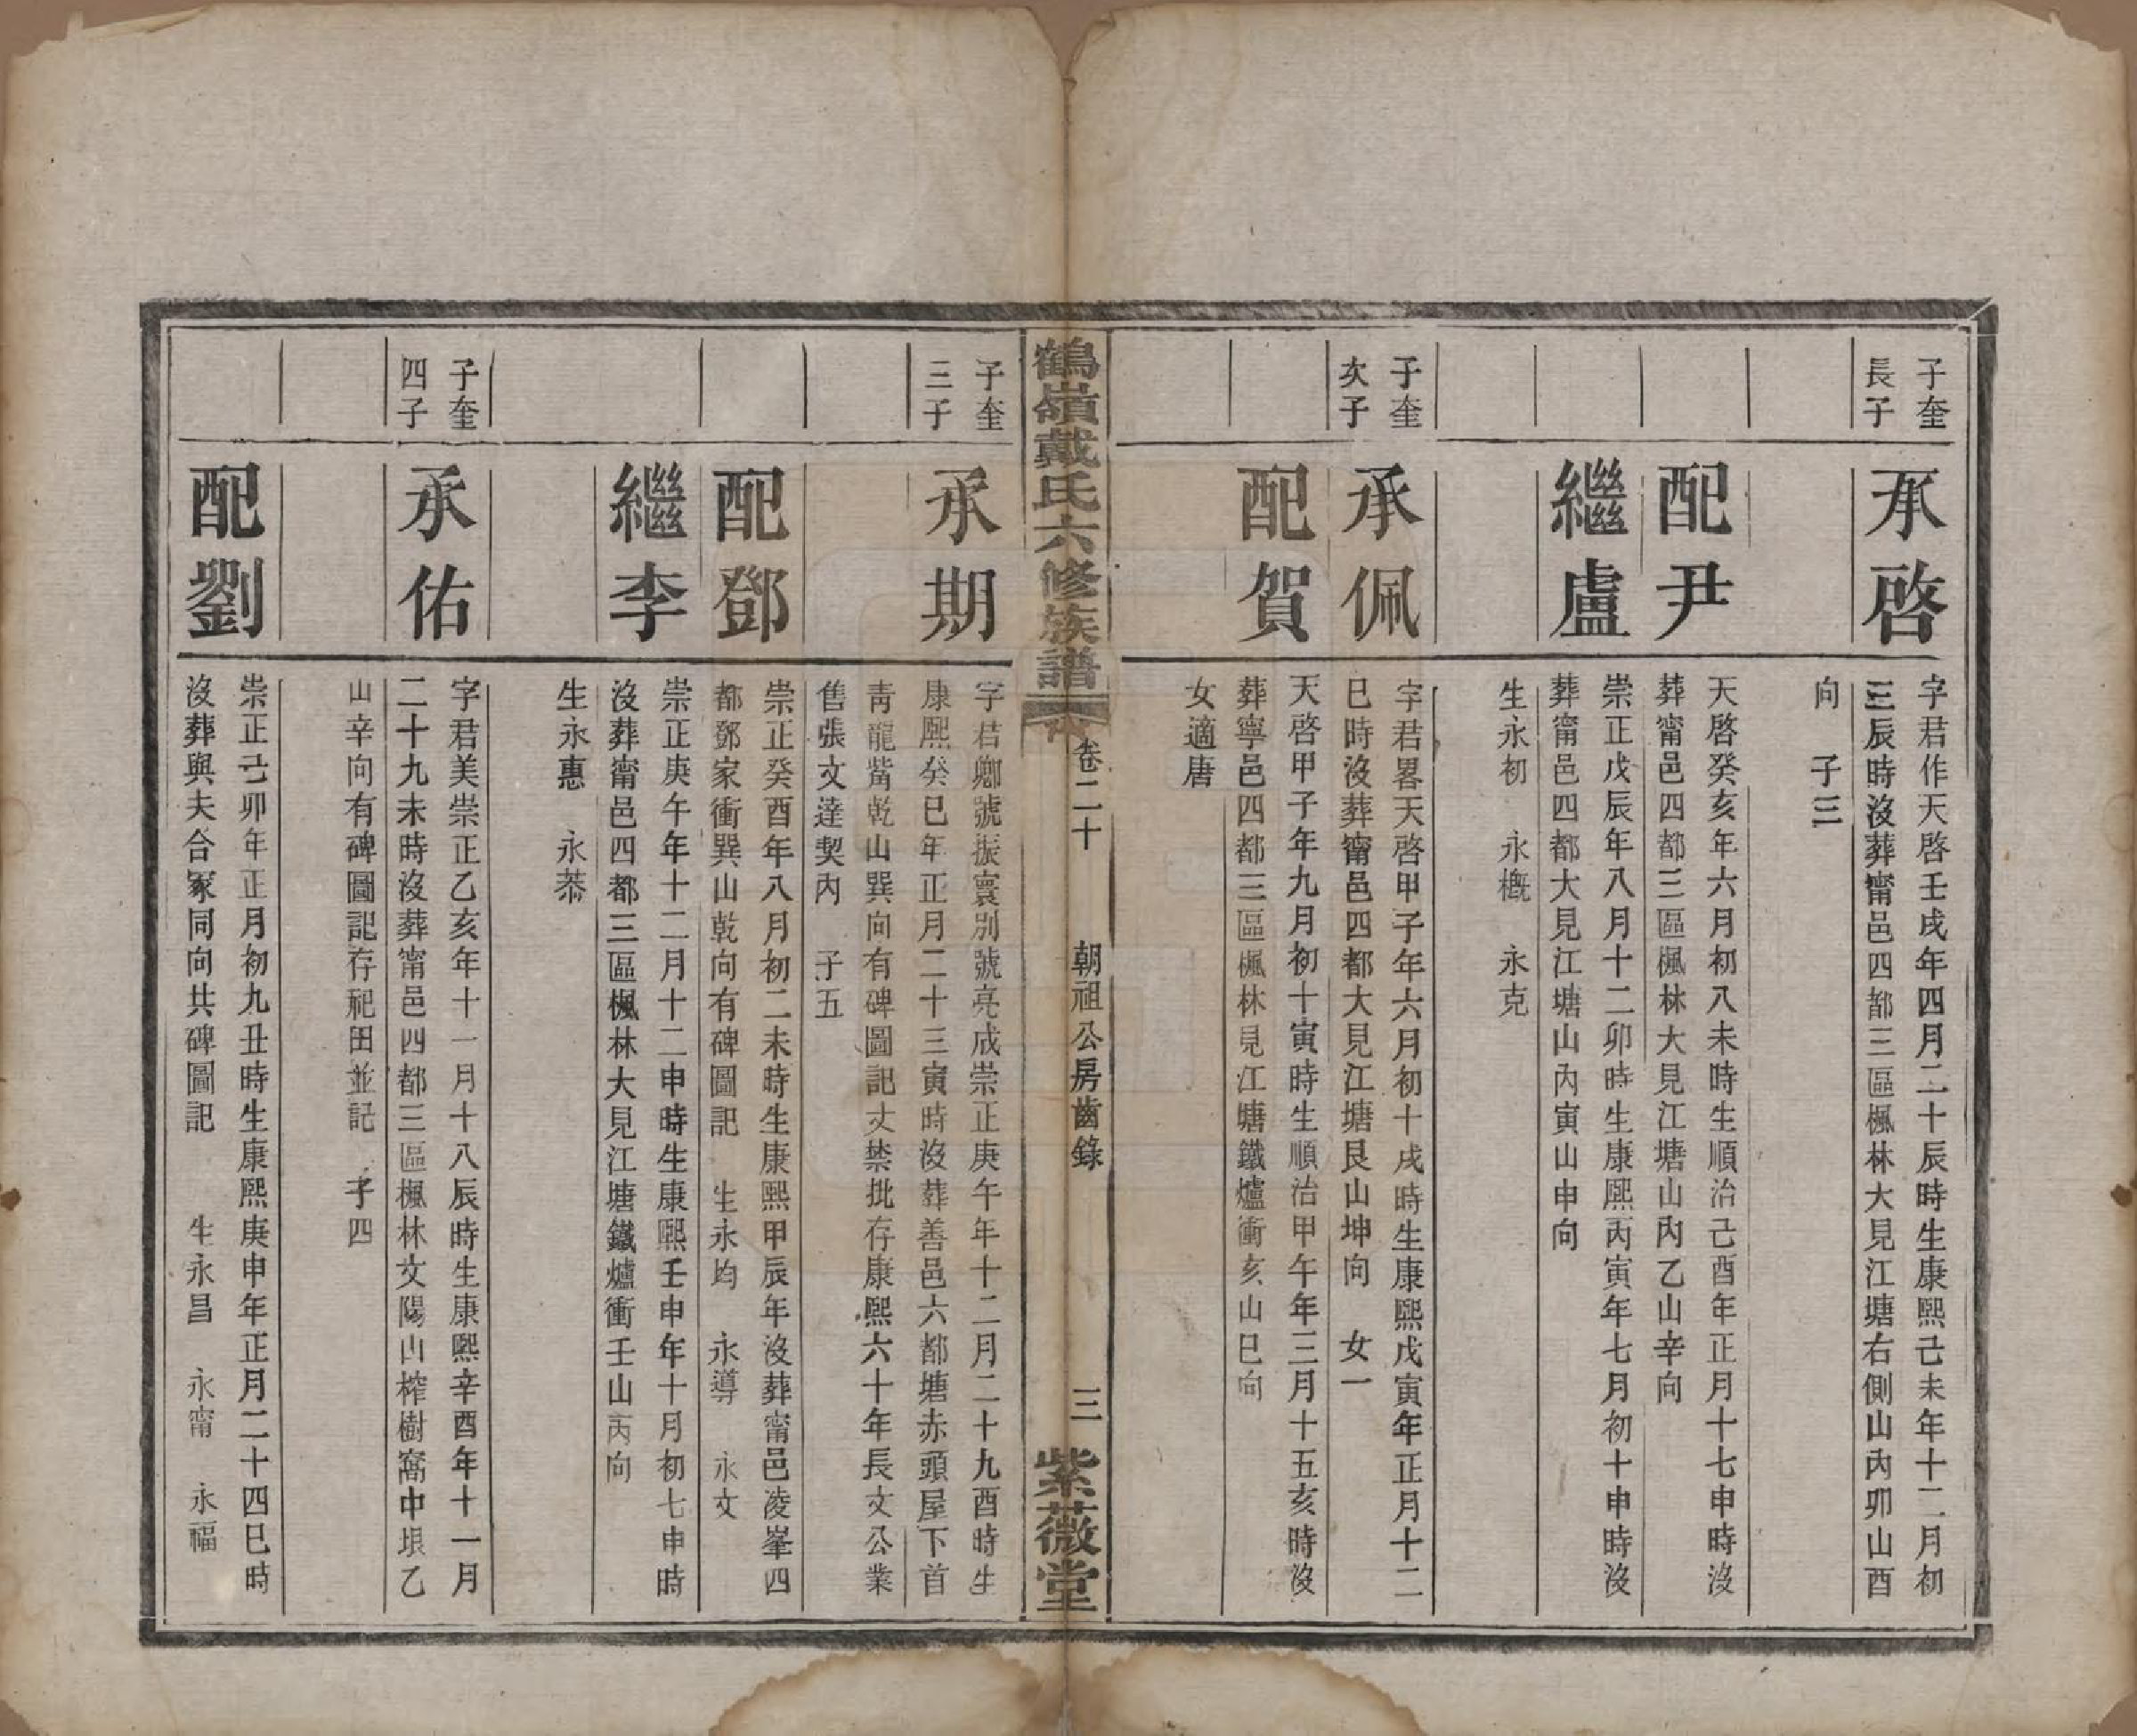 子奎
長子
承啓
字君作天啓壬戌年四月二十辰時生康熙己未年十二月初
三辰時沒葬甯邑四都三區楓林大見江塘右側山內卯山酉
向　子三
配尹
天啓癸亥年六月初八未時生順治己酉年正月十七申時沒
葬甯邑四都三區楓林大見江塘山內乙山辛向
繼盧
崇正戊辰年八月十二卯時生康熙丙寅年七月初十申時沒
葬甯邑四都大見江塘山內寅山申向
生永初　永概　永克
子奎
次子
承佩
字君畧天啓甲子年六月初十戌時生康熙戊寅年正月十二
巳時沒葬甯邑四都大見江塘艮山坤向　女一
配賀
天啓甲子年九月初十寅時生順治甲午年三月十五亥時沒
葬寧邑四都三區楓林見江塘鐵爐衝亥山巳向
女適唐
鶴嶺戴氏六修族譜
卷二十　朝祖公房齒錄　三
紫薇堂
子奎
三子
承期
字君卿號振寰別號亮成崇正庚午年十二月二十九酉時生
康熙癸巳年正月二十三寅時沒葬善邑六都塘赤頭屋下首
青龍嘴乾山巽向有碑圖記丈禁批存康熙六十年長文公業
售張文達契內　子五
配鄧
崇正癸酉年八月初二未時生康熙甲辰年沒葬甯邑凌峯四
都鄧家衝巽山乾向有碑圖記　生永均　永導　永文
繼李
崇正庚午年十二月十二申時生康熙壬申年十月初七申時
沒葬甯邑四都三區楓林大見江塘鐵爐衝壬山丙向
生永惠　永恭
子奎
四子
承佑
字君美崇正乙亥年十一月十八辰時生康熙辛酉年十一月
二十九未時沒葬甯邑四都三區楓林文陽山榨樹窩中垠乙
山辛向有碑圖記存祀田並記　子四
配劉
崇正己卯年正月初九丑時生康熙庚申年正月二十四巳時
沒葬與夫合冢同向共碑圖記　生永昌　永甯　永福